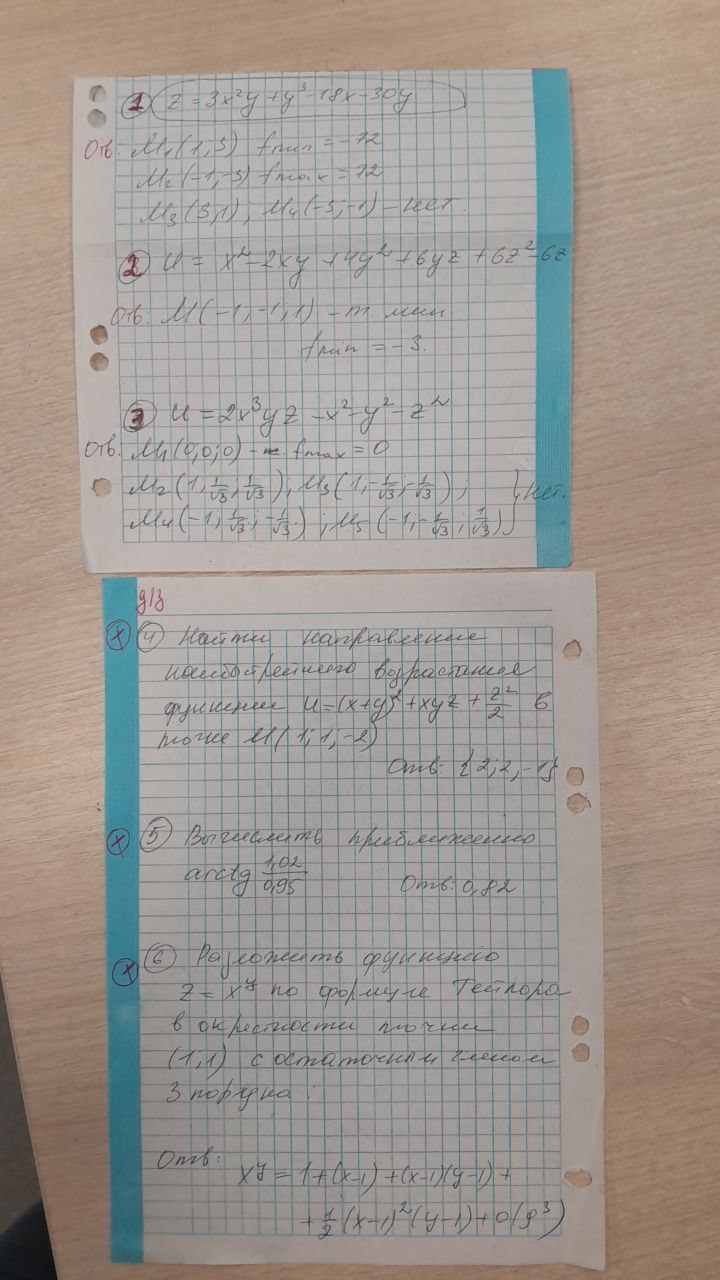 1 z = 3x²y + y³ - 18x - 30y
Отв: M₁(1,3) fmin = -72
M₂(-1,-3) fmax = 72
M₃(3,1), M₄(-3,-1) - нет.
2 U = x² - 2xy + 4y² + 6yz + 6z² - 6z
Отв: M(-1,-1,1) - т. мин
fmin = -3.
3 U = 2x³yz - x² - y² - z²
Отв. M₁(0,0,0) - fmax = 0
M₂(1, 1/√3, 1/√3), M₃(1, -1/√3, -1/√3),
M₄(-1, 1/√3, -1/√3), M₅(-1, -1/√3, 1/√3) } нет.
д/з
x 4 Найти направление
наибыстрейшего возрастания
функции U = (x+y)² + xyz + z²/2 в
точке M(1; 1; -2)
Отв: {2; 2, -1}
x 5 Вычислить приближенно
arctg 1,02/0,95 Отв: 0,82
x 6 Разложить функцию
z = x^y по формуле Тейлора
в окрестности точки
(1,1) с остаточным членом
3 порядка.
Отв: x^y = 1 + (x-1) + (x-1)(y-1) +
+ 1/2 (x-1)²(y-1) + o(ρ³)